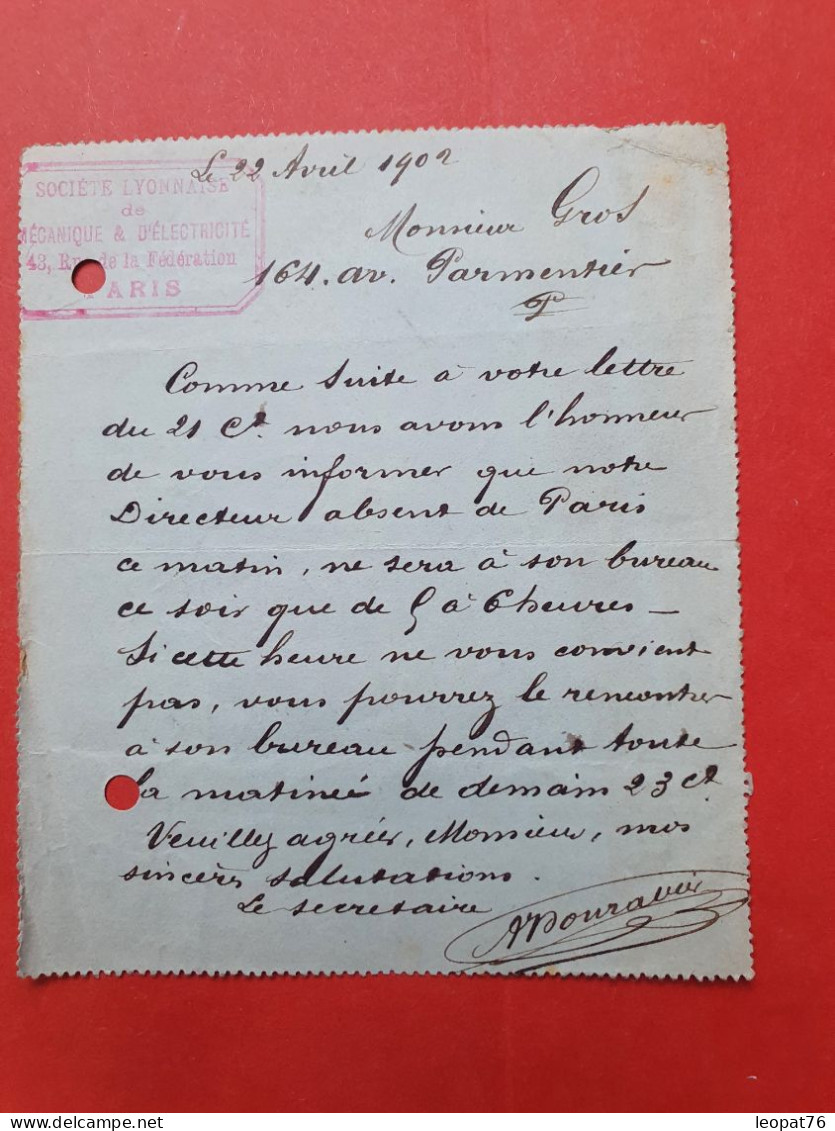 Le 22 Avril 1902
SOCIÉTÉ LYONNAISE
de
MÉCANIQUE & D'ÉLECTRICITÉ
43, Rue de la Fédération
PARIS
Monsieur Gros
164. av. Parmentier
P
Comme suite à votre lettre
du 21 Ct. nous avons l'honneur
de vous informer que notre
Directeur absent de Paris
ce matin, ne sera à son bureau
ce soir que de 5 à 6 heures —
Si cette heure ne vous convient
pas, vous pourrez le rencontrer
à son bureau pendant toute
la matinée de demain 23 Ct.
Veuillez agréer, Monsieur, nos
sincères salutations.
Le secretaire
delcampe.net
leopat76